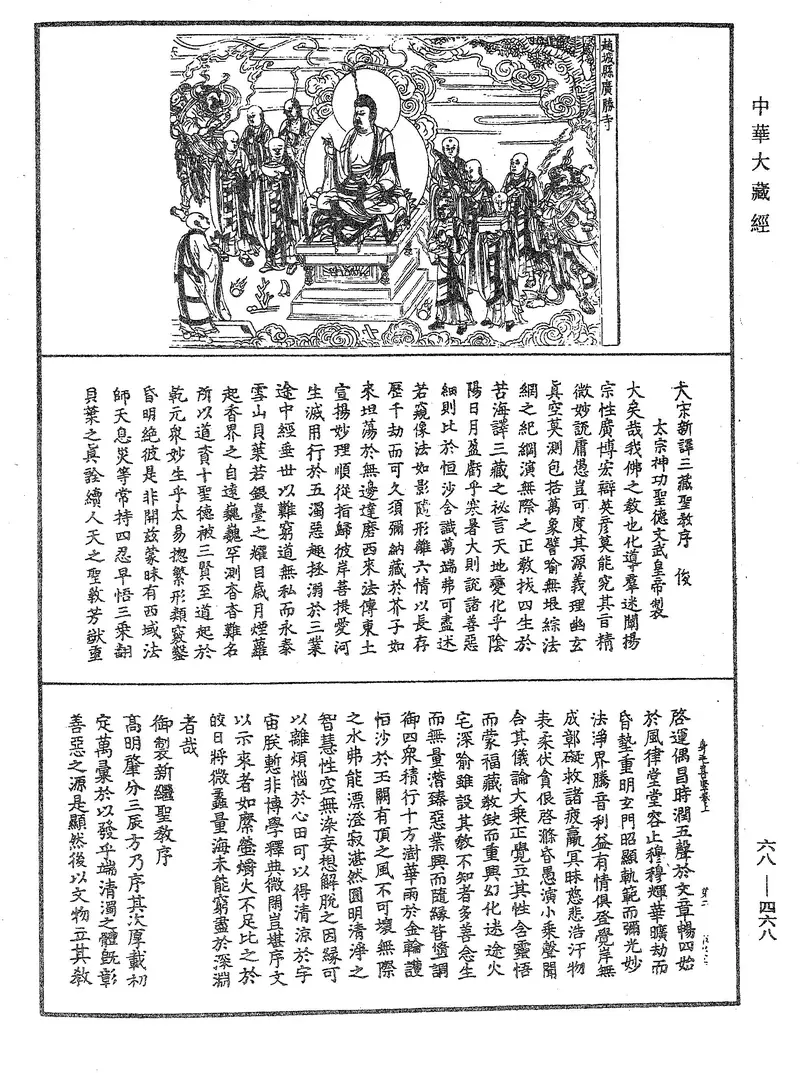 中華大藏經
趙城縣廣勝寺
大宋新譯三藏聖教序 俊
太宗神功聖德文武皇帝製
大矣哉我佛之教也化導羣迷闡揚
宗性廣博宏辯英彥莫能究其言精
微妙說庸愚豈可度其源義理幽玄
真空莫測包括萬象譬喻無垠綜法
網之紀綱演無際之正教拔四生於
苦海譯三藏之祕言天地變化乎陰
陽日月盈虧乎寒暑大則說諸善惡
細則比於恒沙含識萬端弗可盡述
若窺像法如影隨形離六情以長存
歷千劫而可久須彌納藏於芥子如
來坦蕩於無邊達磨西來法傳東土
宣揚妙理順從指歸彼岸菩提愛河
生滅用行於五濁惡趣拯溺於三業
途中經垂世以難窮道無私而永泰
雪山貝葉若銀臺之耀目歲月煙蘿
起香界之自遠巍巍罕測杳杳難名
所以道資十聖德被三賢至道起於
乾元衆妙生乎太易揔繁形類竅鑿
昏明絕彼是非開茲蒙昧有西域法
師天息災等常持四忍早悟三乘翻
貝葉之真詮續人天之聖教芳猷重
啓運偶昌時潤五聲於文章暢四始
於風律堂堂容止穆穆輝華曠劫而
昏墊重明玄門昭顯軌範而彌光妙
法淨界騰音利益有情俱登覺岸無
成鄣礙救諸疲羸冥昧慈悲浩汗物
表柔伏貪佷啓滌昏愚演小乘聲聞
合其儀論大乘正覺立其性含靈悟
而蒙福藏教缺而重興幻化迷途火
宅深喻雖設其教不知者多善念生
而無量潛臻惡業興而隨緣皆墮調
御四衆積行十方澍華雨於金輪護
恒沙於玉闕有頂之風不可壞無際
之水弗能漂澄寂湛然圓明清淨之
智慧性空無染妄想解脫之因緣可
以離煩惱於心田可以得清涼於宇
宙朕慙非博學釋典微閑豈堪序文
以示來者如縻螢爝火不足比之於
皎日將微蠡量海未能窮盡於深淵
者哉
御製新繼聖教序
高明肇分三辰方乃序其次厚載初
定萬彙於以發乎端清濁之體旣彰
善惡之源是顯然後以文物立其教
六八—四六八